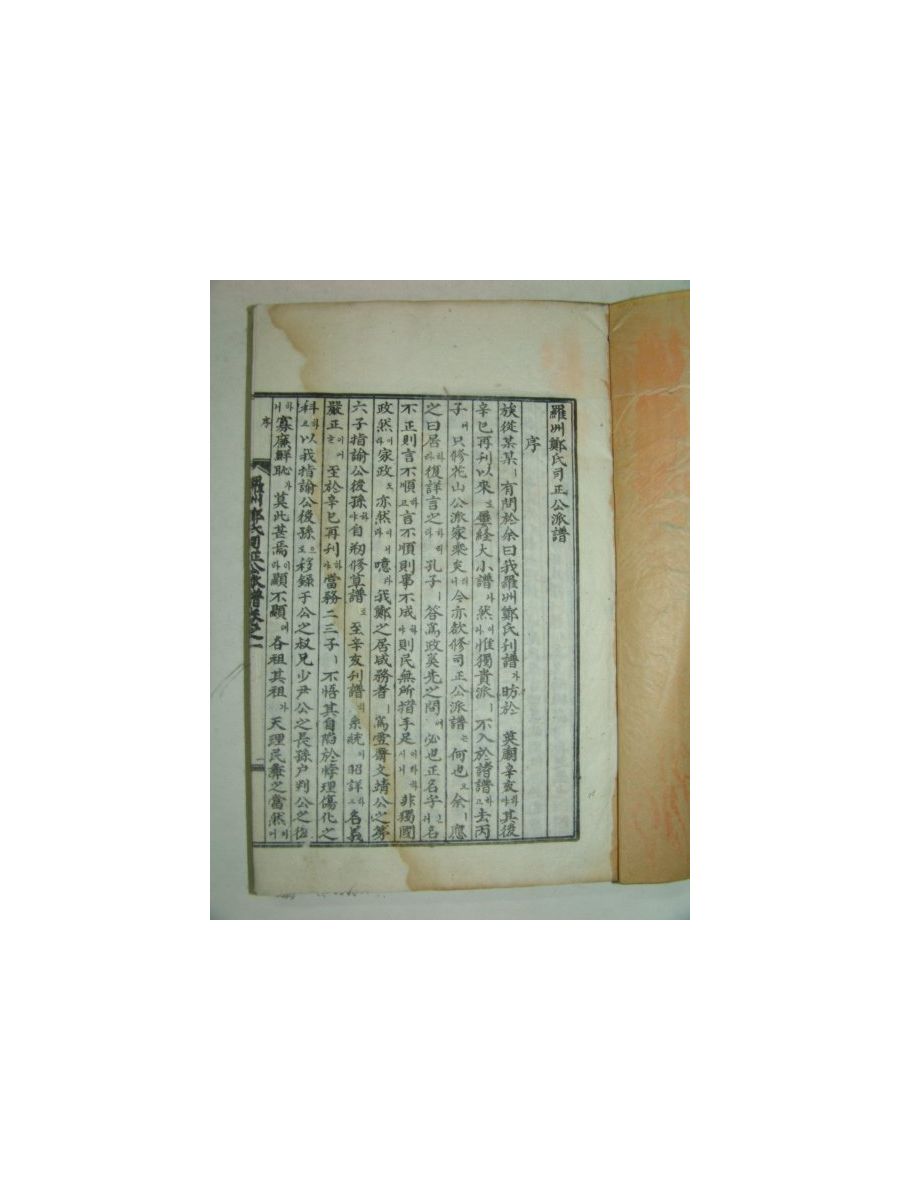 羅州鄭氏司正公派譜
序
族從某某ㅣ有問於余曰我羅州鄭氏刊譜가昉於 英廟辛亥하야其後
辛巳再刊以來로屢經大小譜라然이나惟獨貴派ㅣ不入於諸譜하고去丙
子에只修花山公派家乘矣러니今亦欲修司正公派譜는何也오余ㅣ應
之曰居하라復詳言之하리라孔子ㅣ答爲政奚先之問에必也正名乎인져名
不正則言不順하고言不順則事不成하야則民無所措手足이라하시니非獨國
政然이라家政도亦然이라噫라我鄭之居咸務者ㅣ爲雪齋文靖公之第
六子指諭公後孫하야自刱修草譜로至辛亥刊譜의系統이昭詳하고名義
嚴正이어늘至於辛巳再刊하야當務二三子ㅣ不悟其自陷於悖理傷化之
科하고以我指諭公後孫으로移錄于公之叔兄少尹公之長孫戶判公之后
하니寡廉鮮恥가莫此甚焉이라顯不顯에各祖其祖가天理民彝之當然이어
序
羅州鄭氏司正公派譜卷之一